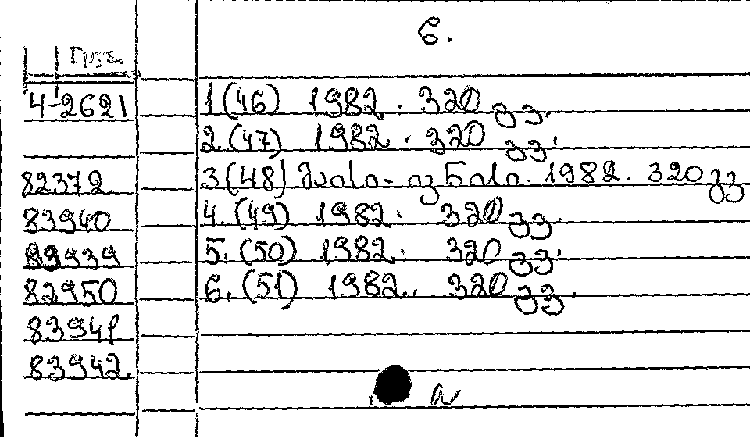 6.
4-2621 1(46) 1982. 320 გვ.
2(47) 1982. 320 გვ.
82372 3(48) მაისი-ივნისი. 1982. 320 გვ
83940 4.(49) 1982. 320 გვ.
5.(50) 1982. 320 გვ.
82950 6.(51) 1982. 320 გვ.
83941
83942